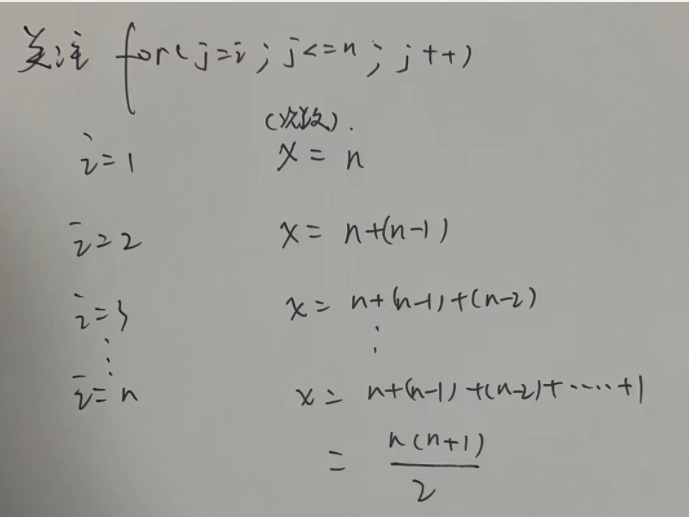 关注 for(j=i; j<=n; j++)
(次数).
i=1 x=n
i=2 x=n+(n-1)
i=3 x=n+(n-1)+(n-2)
⋮ ⋮
i=n x=n+(n-1)+(n-2)+……+1
= n(n+1)/2